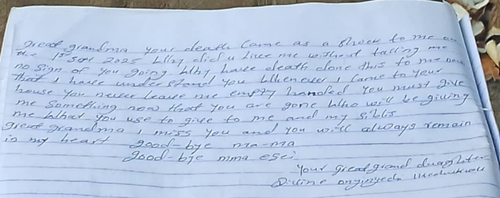 great grandma your death came as a shock to me on
the 1st Sept 2025 Why did u leave me without telling me
no sign of you going Why have death done this to me now
that I have from you Whenever I came to your
house you never leave me empty handed You must give
me Something now that you are gone Who will be giving
me What you use to give to me and my sibls
great grandma I miss you and you will always remain
in my heart good-bye ma-ma
good-bye mma esei
Your great grand daughter
Divine